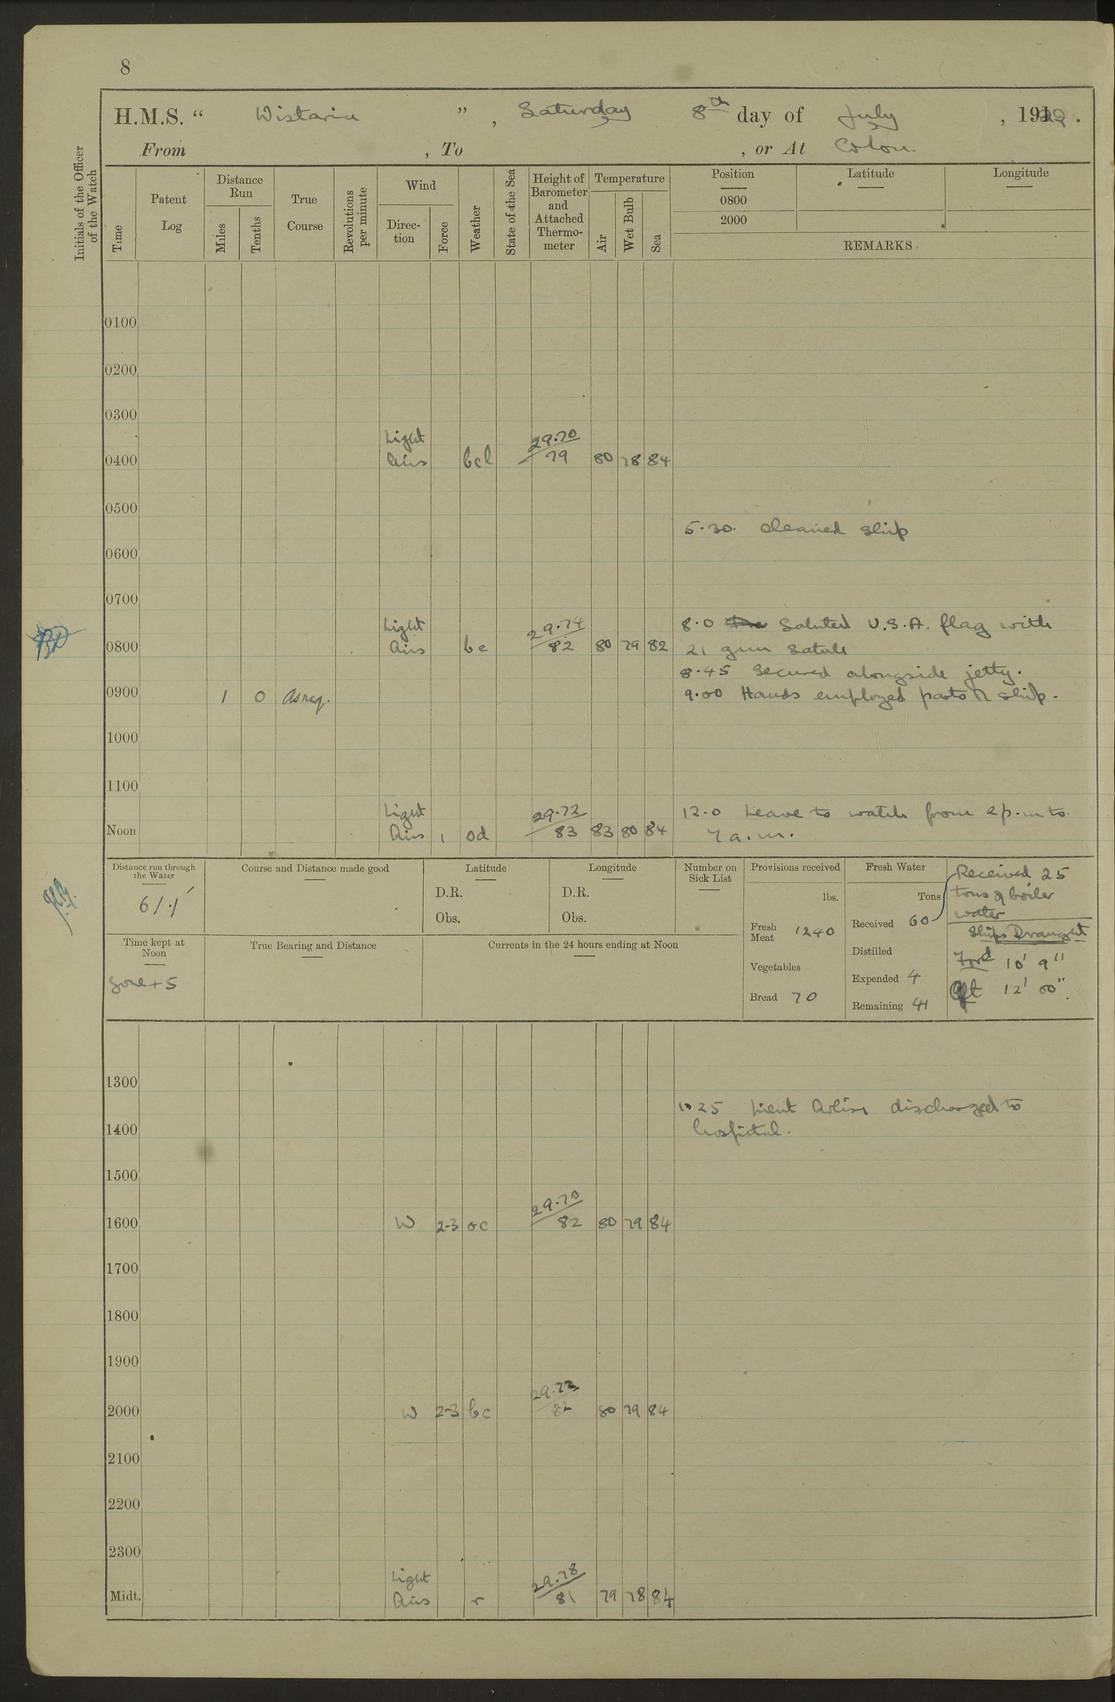 8
H.M.S. “ Wistaria ” , Saturday 8th day of July , 1922 .
From , To , or At Colon.
Initials of the Officer of the Watch
Time
Patent Log
Distance Run
Miles
Tenths
True Course
Revolutions per minute
Wind
Direc- tion
Force
Weather
State of the Sea
Height of Barometer and Attached Thermo- meter
Temperature
Air
Wet Bulb
Sea
Position
Latitude
Longitude
0800
2000
REMARKS.
0100
0200
0300
0400 Light Airs bcl 29.70 79 80 78 84
0500
5.30. Cleaned ship
0600
0700
8.0 Saluted U.S.A. flag with
0800 Light Airs bc 29.74 82 80 79 82 21 gun Salute
8.45 Secured alongside jetty.
0900 1 0 As req. 9.00 Hands employed parts of ship.
1000
1100
12.0 Leave to watch from 2 p.m to
Noon Light Airs 1 od 29.72 83 83 80 84 7 a.m.
Distance run through the Water
61.1
Course and Distance made good
Latitude
D.R.
Obs.
Longitude
D.R.
Obs.
Number on Sick List
Provisions received
lbs.
Fresh Meat 1240
Vegetables
Bread 70
Fresh Water
Tons
Received 60
Distilled
Expended 4
Remaining 41
Received 25
tons of boiler
water
Ships Draught
Ford 10' 9"
Aft 12' 00".
Time kept at Noon
Zone + 5
True Bearing and Distance
Currents in the 24 hours ending at Noon
1300
1.25 Lieut discharged to
1400 hospital.
1500
1600 W 2-3 oc 29.70 82 80 79 84
1700
1800
1900
2000 W 2-3 bc 29.73 82 80 79 84
2100
2200
2300
Midt. Light Airs r 29.78 81 79 78 84